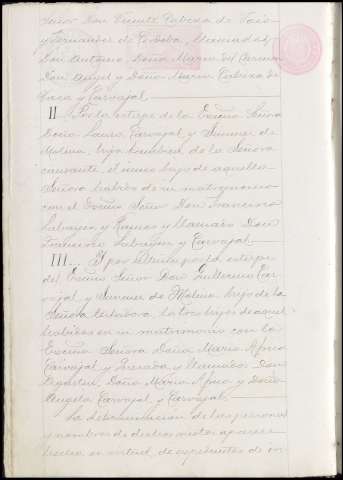 Señor Don Vicente Cabeza de Vaca
y Fernandez de Cordoba, llamados
Don Antonio, Doña Maria del Carmen
Don Angel y Doña Maria Cabeza de
Vaca y Carvajal.
II Por la estirpe de la Excma Señora
Doña Laura Carvajal y Jimenez de
Molina, hija tambien de la Señora
causante, el unico hijo de aquella
Señora habido de su matrimonio
con el Excmo Señor Don Francisco
y llamado Don
Francisco y Carvajal.
III. Y por ultimo por la estirpe
del Excmo Señor Don Guillermo Car-
vajal y Jimenez de Molina, hijo de la
Señora testadora, los tres hijos de aquel
habidos en su matrimonio con la
Excma Señora Doña Maria Africa
Carvajal y y llamados Don
Agustin, Doña Maria Africa y Doña
Angela Carvajal y Carvajal.
La determinacion de las personas
y nombres de dichos nietos aparece
hecha en virtud de expedientes de in